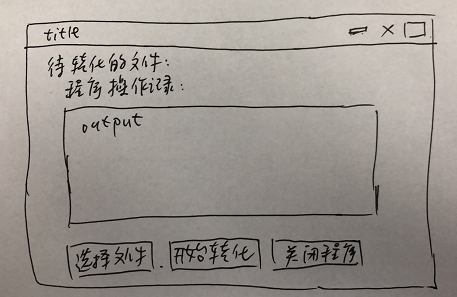 title
待转化的文件:
程序操作记录:
output
选择文件
开始转化
关闭程序